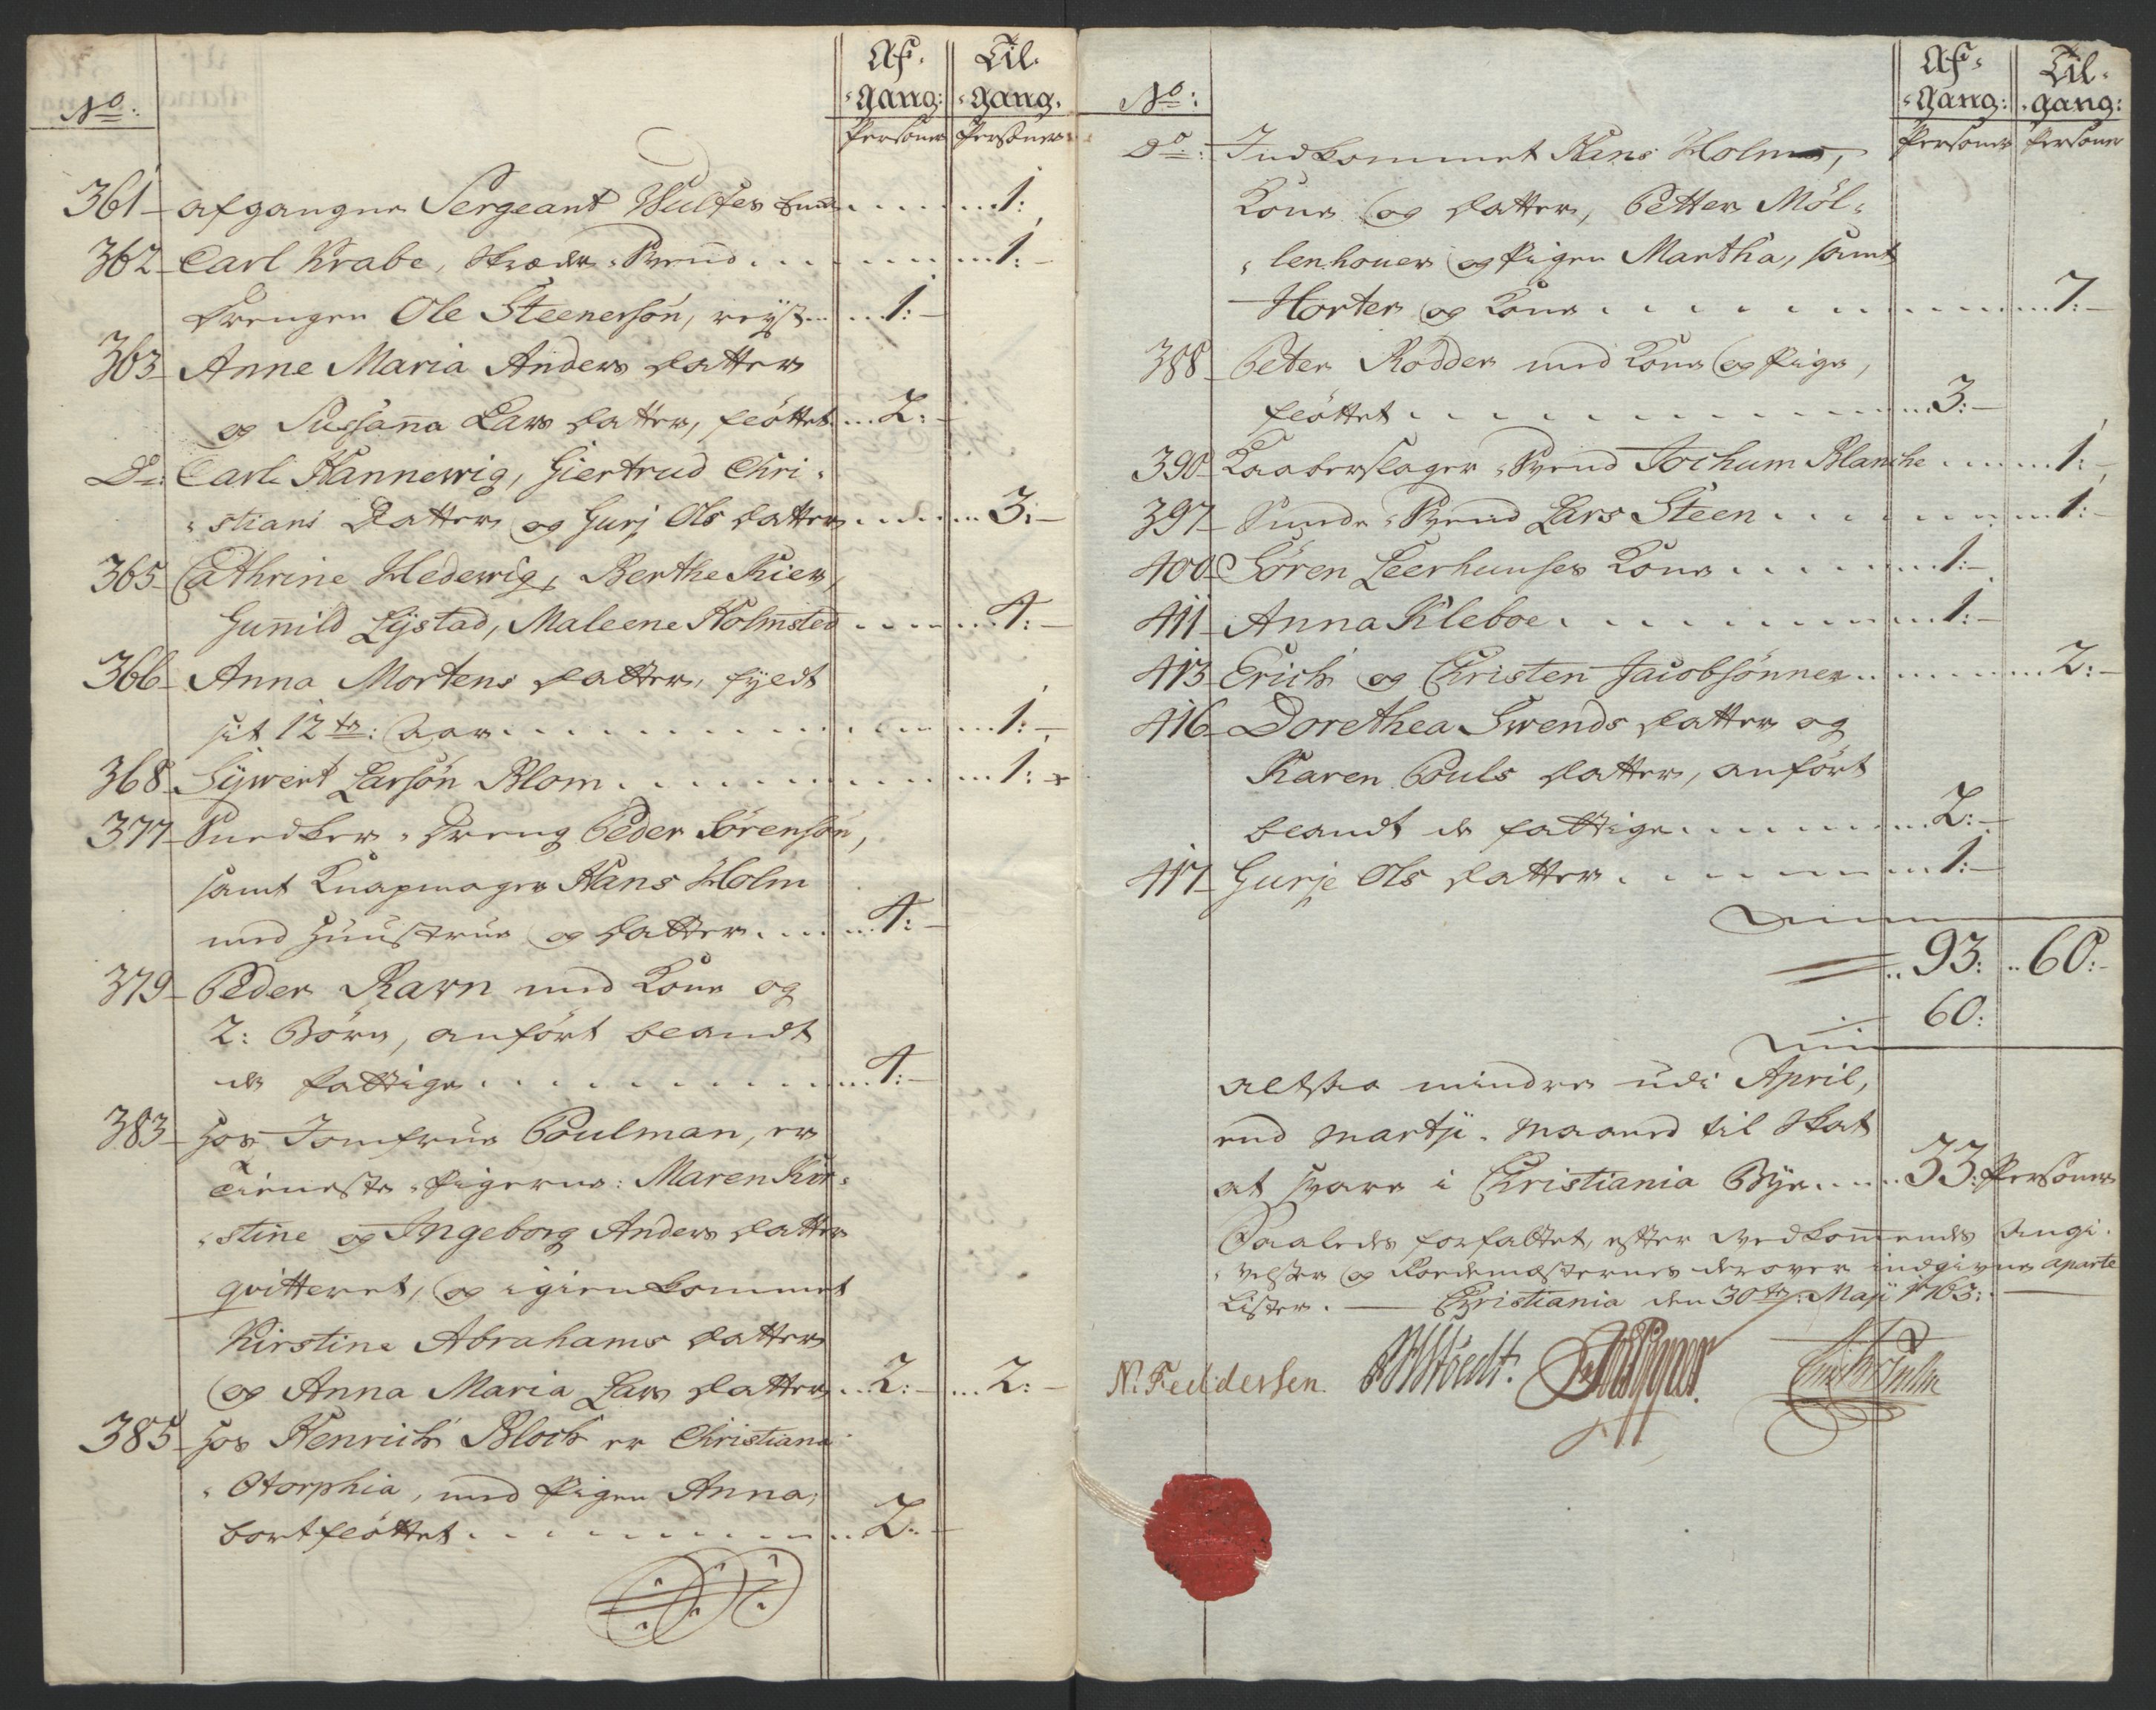 No:
Af-
gang:
Personer
Til-
gang.
Personer
361 afgangne Sergeant Wulfes Enke . . . . 1:
362 Carl Krabe, Skræder-Svend . . . . 1:
Drengen Ole Steenersøn, reyst . . 1:
363 Anne Maria Anders Datter
og Sussanna Lars Datter, fløttet . . 2:
Do: Carl Hannewig, Giertrud Chri-
-stians Datter og Gurj Ols Datter . . . . 3:
365 Cathrine Hedewig, Berthe Kier,
Gunild Lystad, Maleene Holmsted . . . . 4:
366 Anna Mortens Datter, fyldt
sit 12te: Aar . . . . 1:
368 Sywert Larsøn Blom . . . . 1:
377 Snedker-Dreng Peder Sørensøn,
samt Knapmager Hans Holm
med Huustrue og Datter . . . . 4:
379 Peder Ravn med Kone og
2: Børn, anført blandt
de fattige . . . . 4:
383 Hos Jomfrue Poulman, er
Tieneste-Pigerne: Maren Kir-
-stine og Ingeborg Anders Datter
qvitteret, og igien kommet
Kirstine Abrahams Datter
og Anna Maria Lars Datter . . 2: . . 2:
385 Hos Henrich Bloch er Christiana
Otorphia, med Pigen Anna,
bortfløttet . . . . 2:
No:
Af-
gang:
Personer
Til-
gang:
Personer
Do: Indkommet Hans Holm,
Kone og Datter, Petter Möl-
-lenhouer og Pigen Martha, samt
Horter og Kone . . . . 7:
388 Peter Rodder med Kone og Pige,
fløttet . . . . 3:
390 Kaaberslager-Svend Jochum Blanche . . . . 1:
397 Svend Lars Steen . . . . 1:
400 Søren Leerhuuses Kone . . . . 1:
411 Anna Kleboe . . . . 1:
413 Erich og Christen Jacobsønner . . . . 2:
416 Dorethea Swends Datter og
Karen Pouls Datter, anført
blandt de fattige . . . . 2:
417 Gurje Ols Datter . . . . 1:
93: 60:
60:
altsaa mindre udi April,
end Martji-Maaned til Skat
at svare i Christiania Bye . . . . 33: Personer
Saaledes forfattet, efter Vedkommendes Angi-
-velser og Rodemesternes derover indgivne aparte
Lister. — Christiania den 30te: Maji 1763:
N: Feddersen.